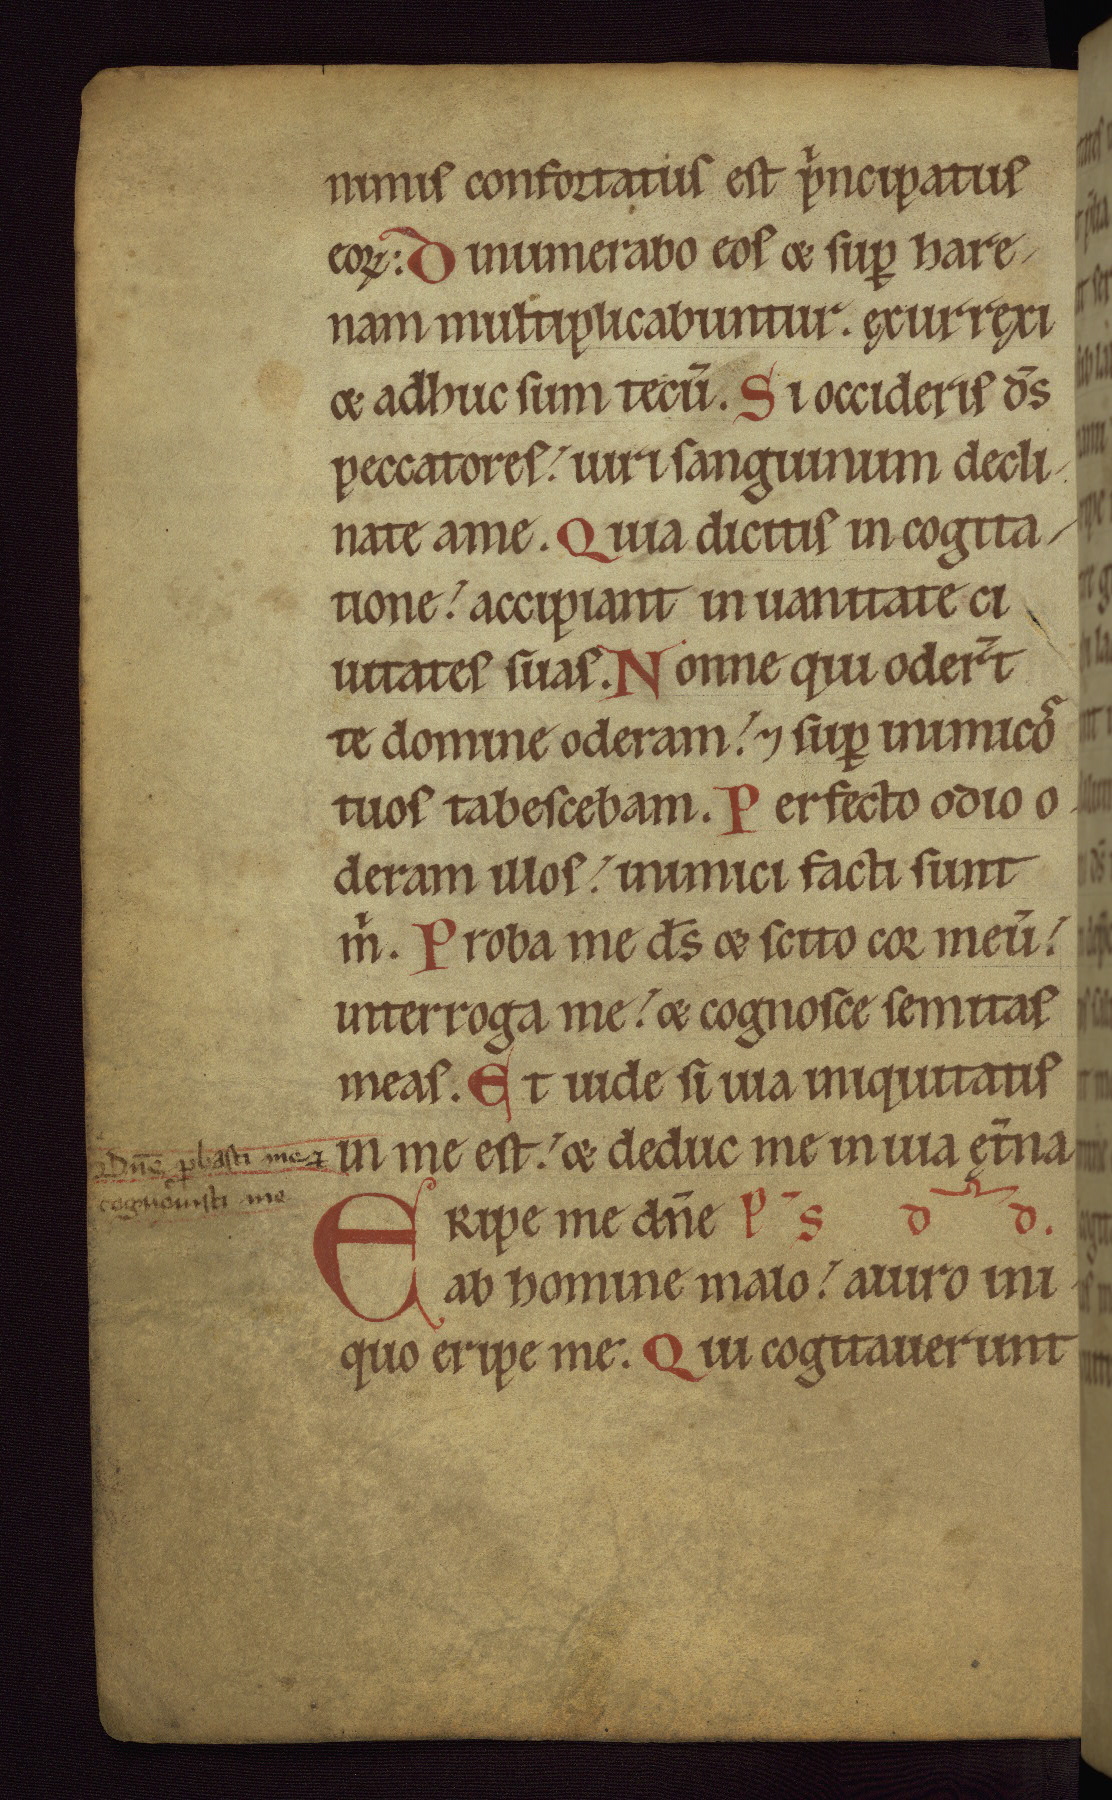 nimis confortatus est p̍ncipatus
eoꝝ: Dinumerabo eos & suꝑ hare-
nam multiplicabuntur. ęxurręxi
& adhuc sum tecū. Si occideris ds̄
peccatores! uiri sanguinum decli-
nate ame. Quia dicitis in cogita-
tione! accipiant in uanitate ci
uitates suas. Nonne qui oder̄t
te domine oderam! ⁊ suꝑ inimicoˢ
tuos tabescebam. Perfecto odio o-
deram illos! inimici facti sunt
m̍. Proba me ds̄ & scito cor meū!
interroga me! & cognosce semitas
meas. Et uide si uia iniquitatis
in me est! & deduc me in uia ęt̄na
Dn̄e ꝓbasti me ⁊
cognouisti me
Eripe me dn̄e p̄ s d d.
ab homine malo! auiro ini-
quo eripe me. Qui cogitauerunt